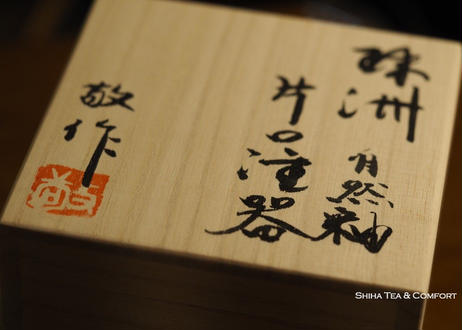 珠洲 自然釉
片口注器
敬作
SHIHA TEA & COMFORT